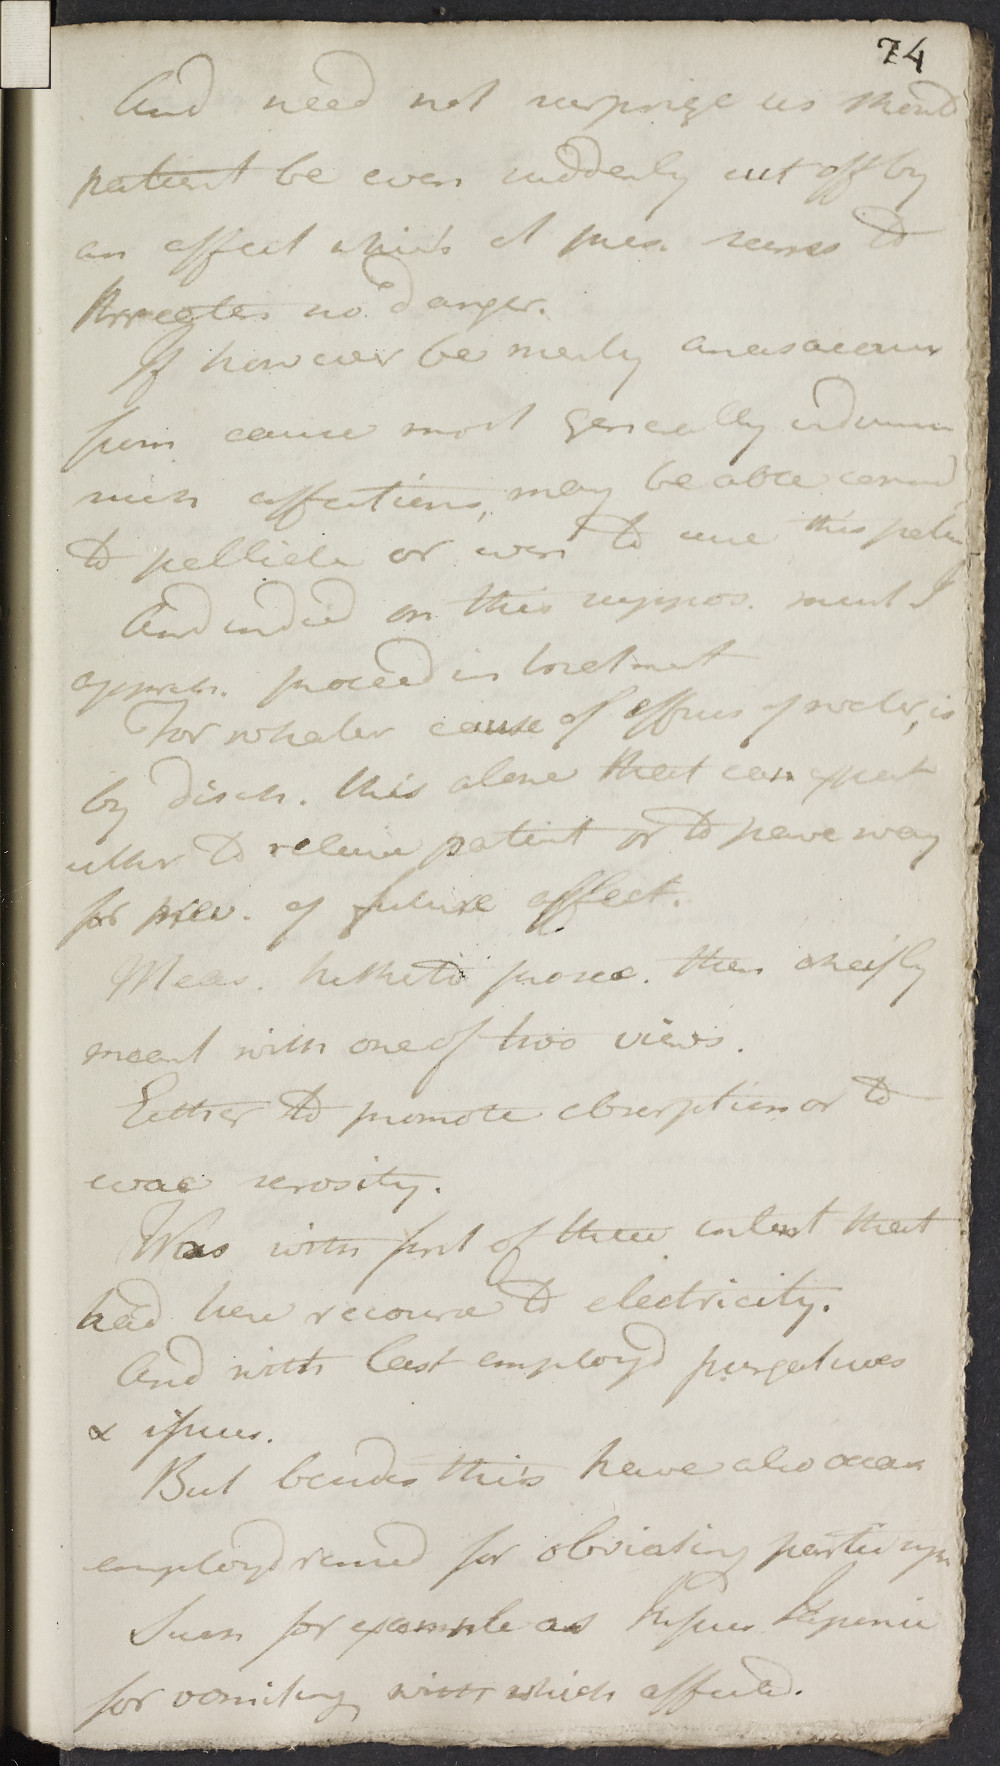 74
And need not surprize us should
patient be even suddenly cut off by
an affect which at pres. seems to
threaten no danger.
If however be merely anasarcous
from cause most generally inducing
such affections, may be able consid
to palliate or even to cure this patien
And indeed on this suppos. must I
appreh. proceed in treatment
For whatever cause of effus of water, is
by disch. this alone that can expect
either to relieve patient or to pave way
for prev. of future affect.
Meas. hitherto presc. then cheifly
meant with one of two views.
Either to promote absorption or to
evac serosity.
Was with first of these intent that
had here recourse to electricity.
And with last employd purgatives
& issues.
But besides this have also occas
employd remed for obviating partic symp
Such for example as
for vomiting with which affected.